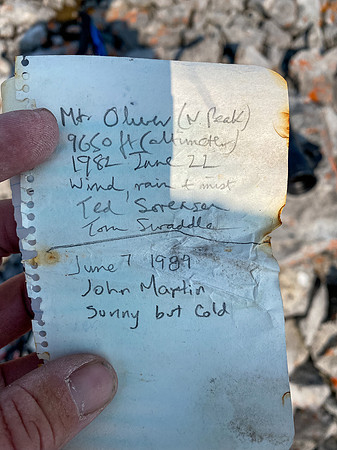 Mt. Oliver (N. Peak)
9650 ft (altimeter)
1982 June 22
Wind, rain & mist
Ted Sorensen
Tom Swaddle
June 7 1989
John Martin
Sunny but Cold